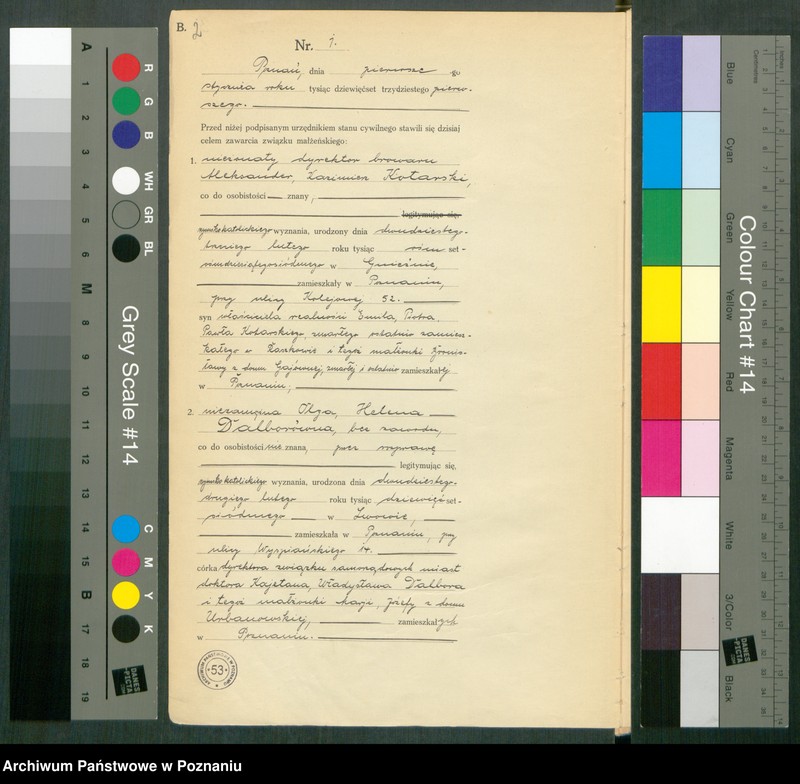 B. 2
Nr. 1.
Poznań, dnia pierwszego
stycznia roku tysiąc dziewięćset trzydziestego pierw-
szego.
Przed niżej podpisanym urzędnikiem stanu cywilnego stawili się dzisiaj
celem zawarcia związku małżeńskiego:
1. nieżonaty dyrektor browaru
Aleksander, Kazimierz Kotarski,
co do osobistości znany,
legitymując się,
rzymskokatolickiego wyznania, urodzony dnia dwudziestego-
trzeciego lutego roku tysiąc osiem set-
w Gnieźnie,
zamieszkały w Poznaniu,
przy ulicy Kolejowej 52.
syn właściciela realności Emila, Piotra,
Pawła Kotarskiego, zmarłego ostatnio zamiesz-
kałego w i tegoż małżonki Bronis-
ławy z domu zmarłej i ostatnio zamieszkałej
w Poznaniu,
2. niezamężna Olga, Helena
Dalborówna, bez zawodu,
co do osobistości nie znana, przez rozprawę
legitymując się,
rzymskokatolickiego wyznania, urodzona dnia dwudziestego-
drugiego lutego roku tysiąc dziewięć set-
siódmego w Lwowie,
zamieszkała w Poznaniu, przy
ulicy Wyspiańskiego 14.
córka dyrektora związku samorządowych miast
doktora Kajetana, Władysława Dalbora
i tegoż małżonki Marji, Józefy z domu
Urbanowskiej, zamieszkałych
w Poznaniu.
ARCHIWUM PAŃSTWOWE W POZNANIU
53
Grey Scale #14
A 1 2 3 4 5 6 M 8 9 10 11 12 13 14 15 B 17 18 19
R G B WH GR BL
C M Y K
DANES-PICTA.COM
Colour Chart #14
Blue
Cyan
Green
Yellow
Red
Magenta
White
3/Color
Black
Centimetres
DANES-PICTA.COM
Archiwum Państwowe w Poznaniu